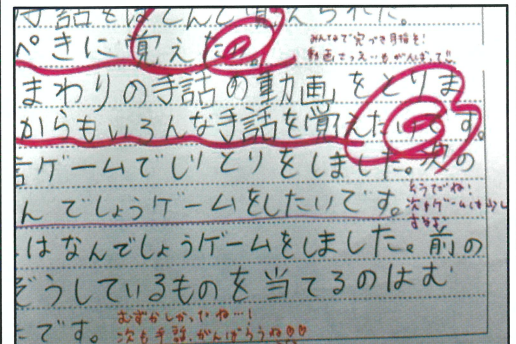 手話をほとんど覚えられた。
ぺきに覚えた
みんなで完ぺき目指そ!
動画さつえいもがんばって
まわりの手話の動画をとりま
からもいろんな手話を覚えたいです。
言ゲームでしりとりをしました。次の
んでしょうゲームをしたいです。
そうだね!
次もゲームは
はなんでしょうゲームをしました。前の
ぞうしているものを当てるのはむ
たです。
むずかしかったね…!
次も手話、がんばろうね